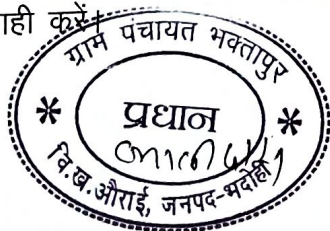 ाही करें।
ग्राम पंचायत भक्तापुर
* प्रधान *
वि.ख.औराई, जनपद-भदोही